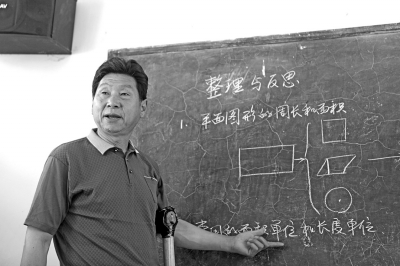 整理与反思
1. 平面图形的周长和面积
常用的面积单位和长度单位.